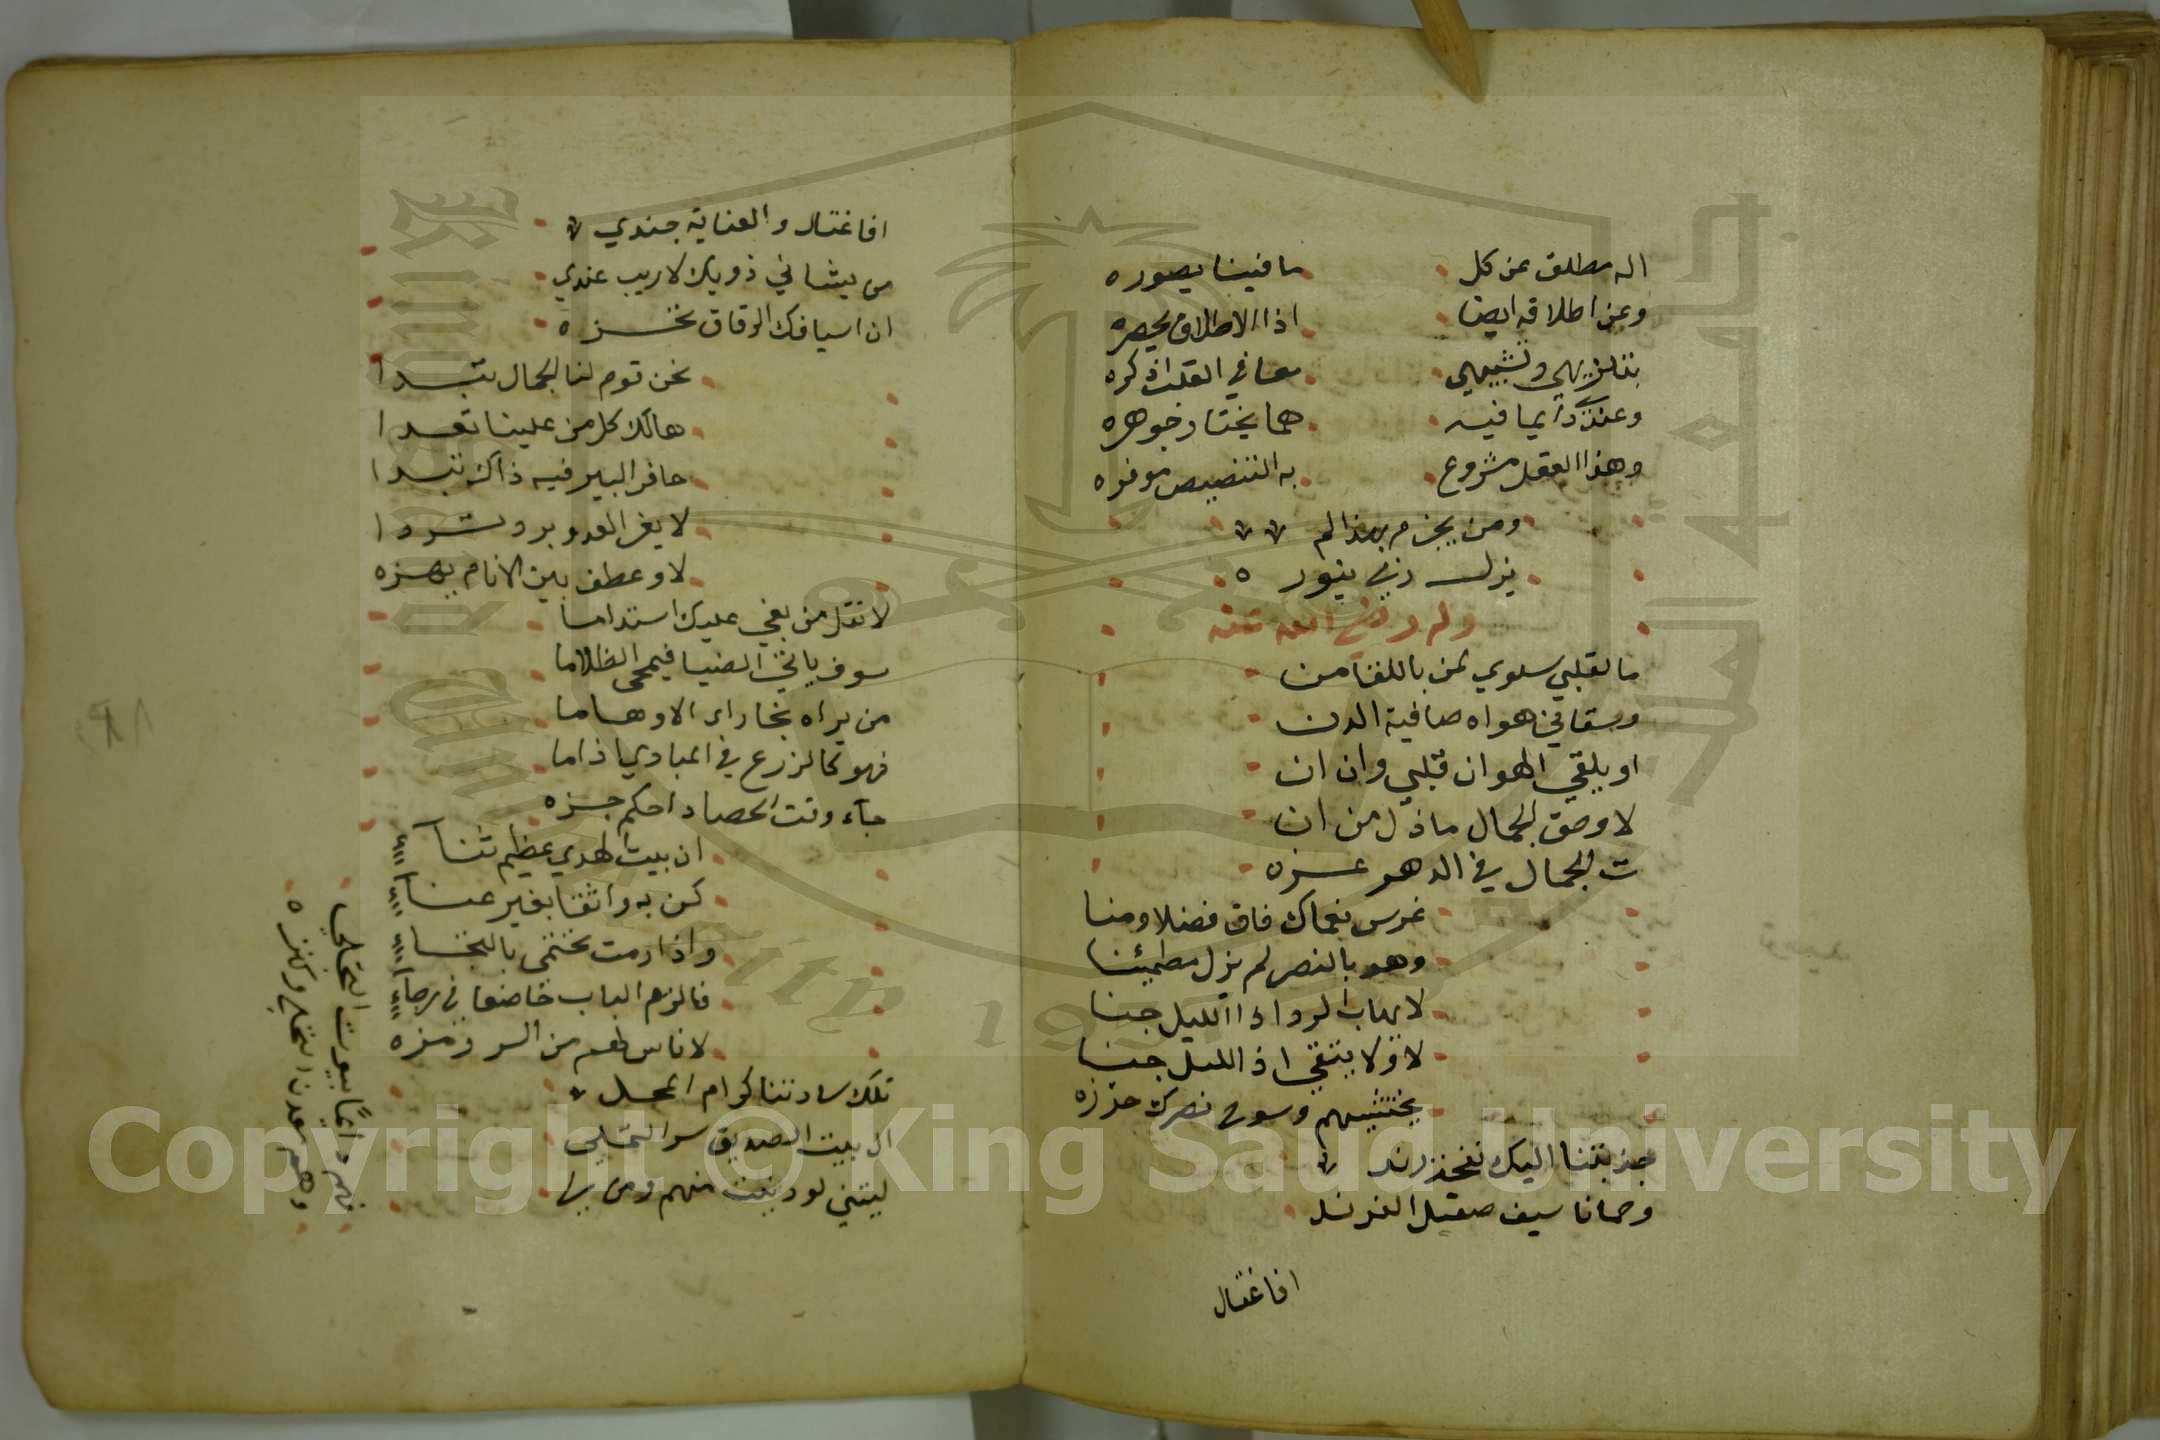 اله مطلق عن كل ما فينا يصوره
وعن اطلاقه ايضا اذا الاطلاق يحصره
بتنزيهي وتشبيهي معا في القلب اذكره
وعند دايما فيه هما يختار جوهره
وهذا العقل مشروع به التنصيص موفره
ومن يجزم بهذا لم
يزل ينور
وله رضي الله عنه
ما لقلبي سلوي عن باللقا من
وسقاني هواه صافية الدن
او يلقي الهوان قلبي وان ان
لا وحق الجمال ما ذل من ان
ت الجمال في الدهر عزه
غرس نعماك فاق فضلا ومنا
وهو بالنصر لم يزل مطمئنا
لا يهاب الردا اذا الليل جنا
لا ولا يتقي اذ الليل جنا
يختشيهم وسور نصرك حرزه
جذبتنا اليك نفحة رند
وحمانا سيف صقيل الفرند
افاغتال
افاغتال والعناية جندي
من يشاني ذويك لا ريب عندي
ان اسيافك الرقاق تخزه
نحن قوم لنا الجمال تبدا
هالك كل من علينا تعدا
حافر البير فيه ذاك تبدا
لا يغر العدو برد تردا
لا وعطف بين الانام يهزه
لا تقل من بغي عليك استداما
سوف ياتي الضيا فيمحى الظلاما
من يراه نجا راء الاوهاما
فهو كالزرع في المبادي اذا ما
جآء وقت الحصاد احكم جزه
ان بيت الهدي عظيم ثنآء
كن به واثقا بغير عنآء
واذا رمت تختمى بالتجاء
فالزم الباب خاضعا في رجآء
لاناس طعم من السر رمزه
تلك سادتنا كرام المحل
ال بيت الصديق سر التجلي
ليتني لو دنيت منهم ومن لي
فهم دائما بيوت التجلي
وهم معدن التقى وكنزه
Copyright © King Saud University